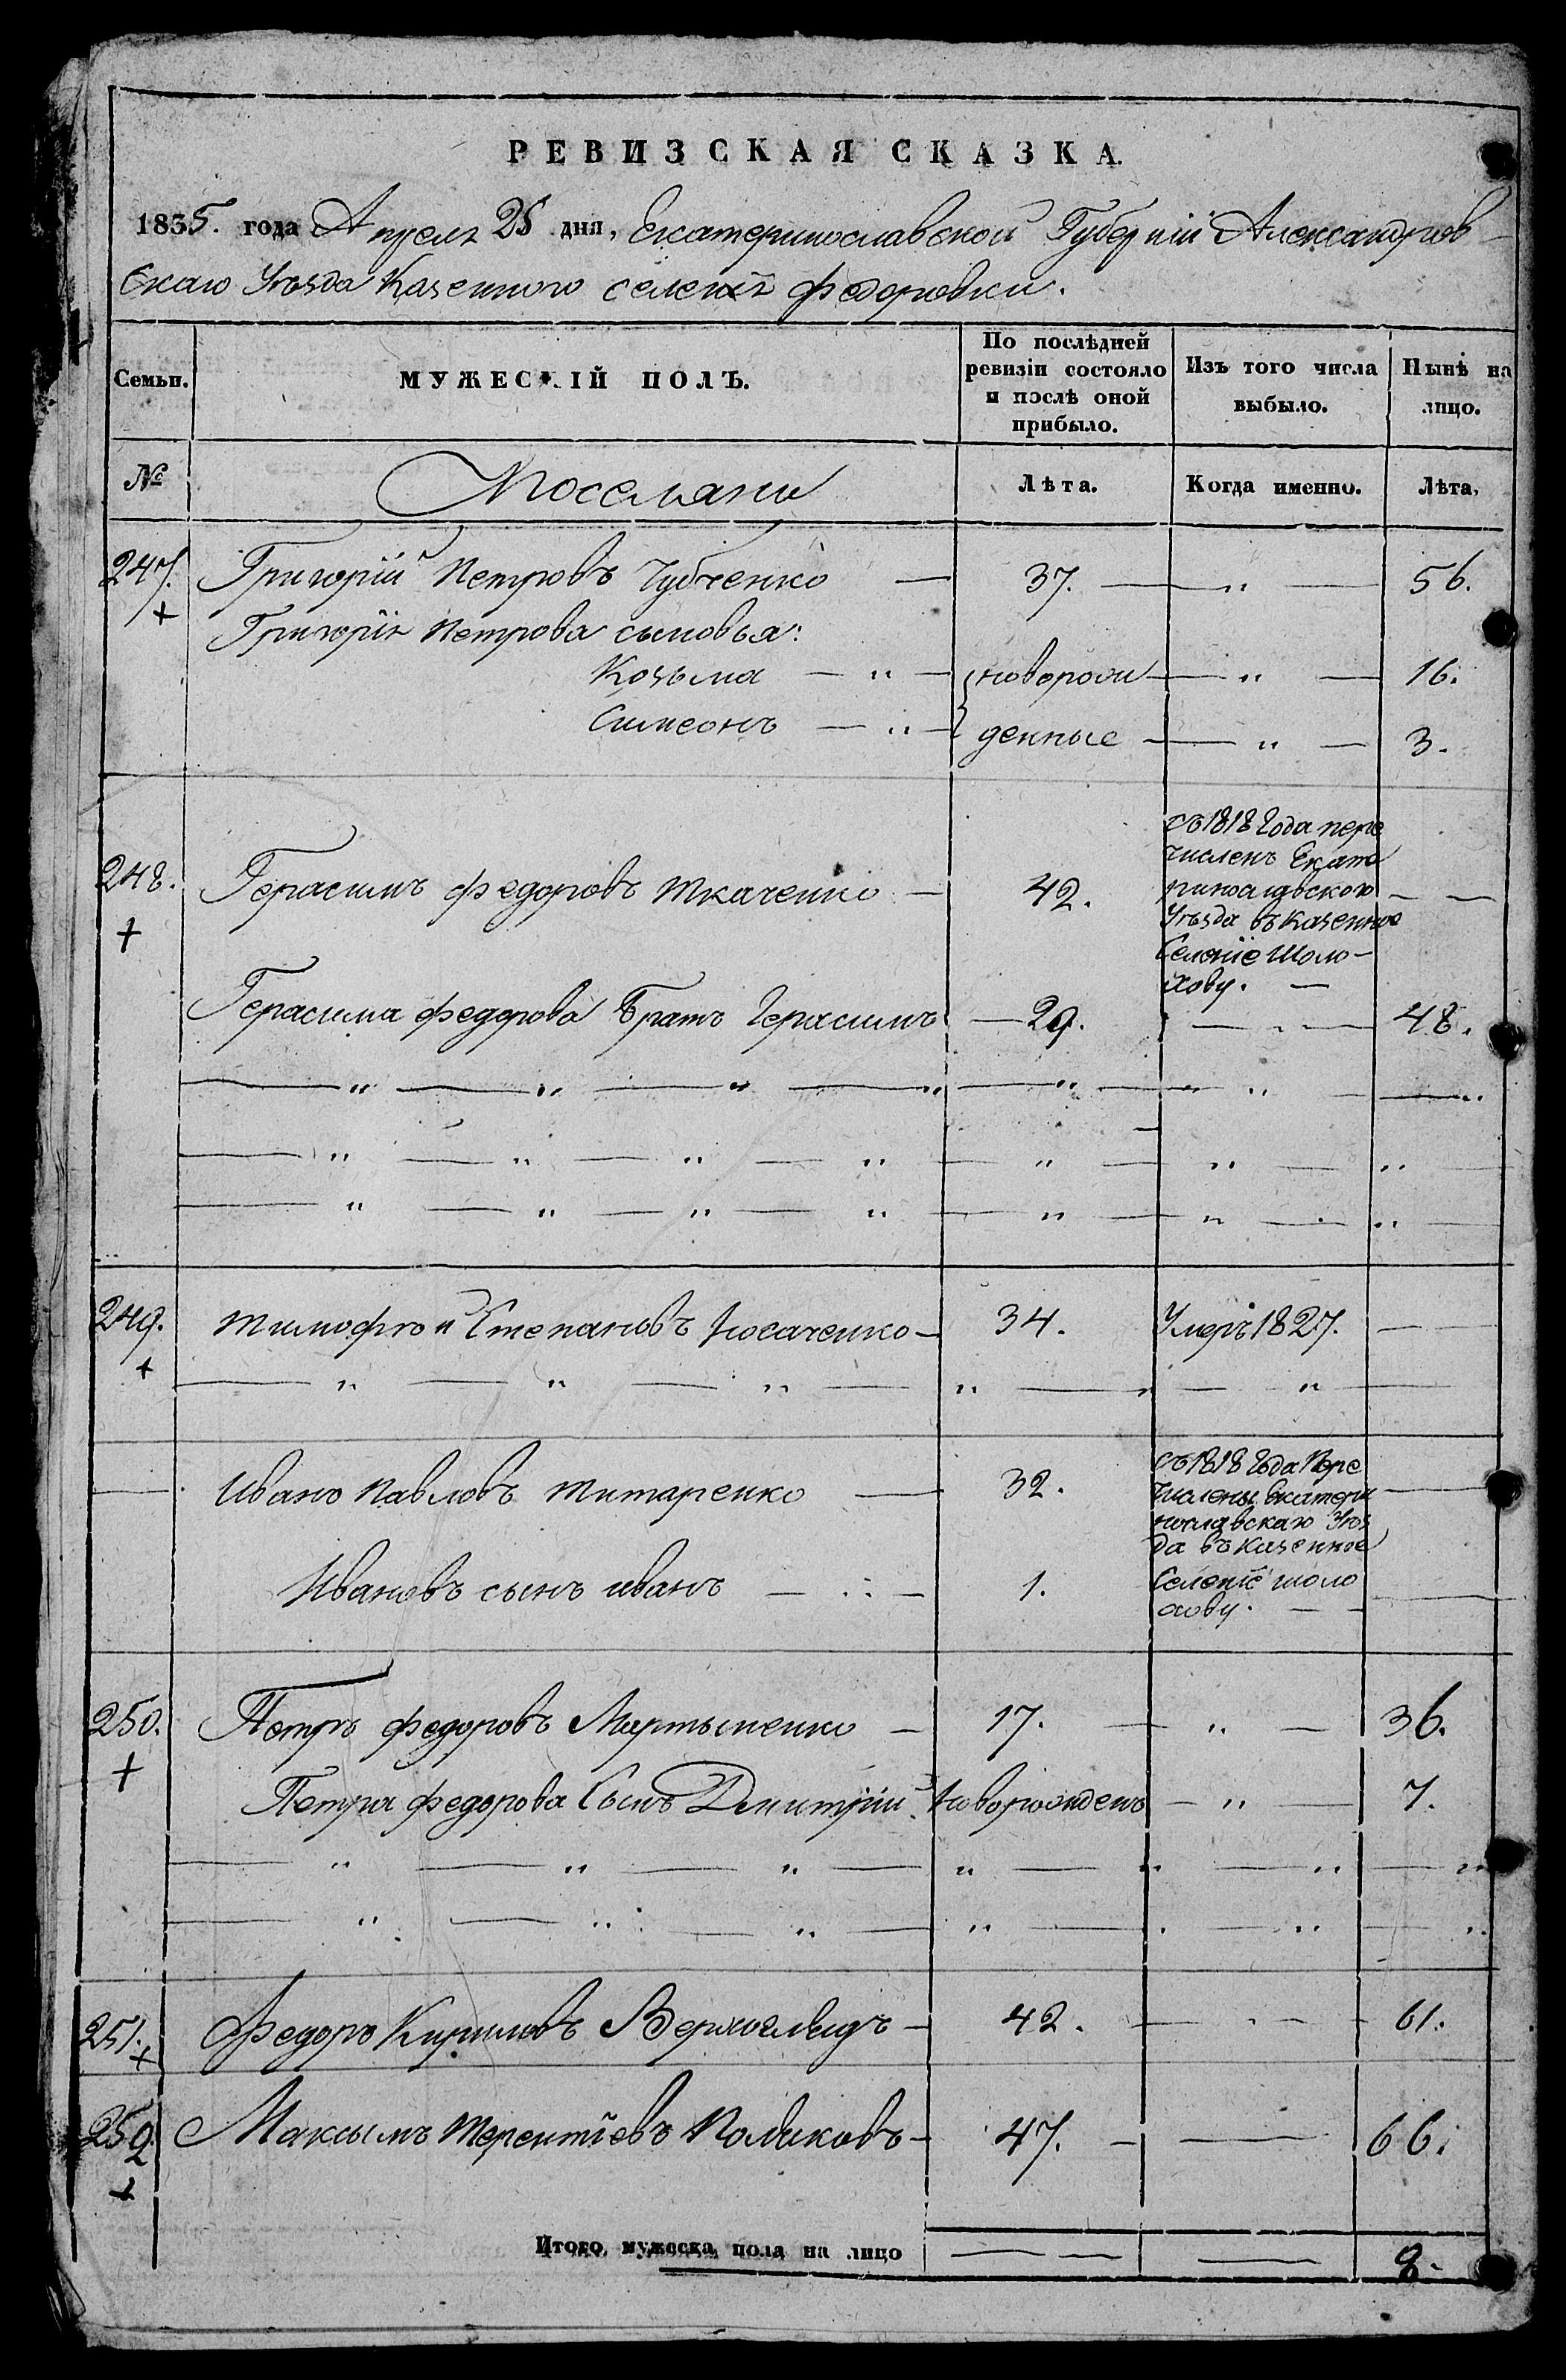 РЕВИЗСКАЯ СКАЗКА.
1835. года Апреля 25 дня, Екатеринославской Губерніи Александров-
скаго Уѣзда Казенного селенія Федоровки.
Семьи.
МУЖЕСКІЙ ПОЛЪ.
По послѣдней ревизіи состояло и послѣ оной прибыло.
Изъ того числа выбыло.
Нынѣ на лицо.
№
Поселяни
Лѣта.
Когда именно.
Лѣта.
247. Григорій Петровъ Чубченко — 37. — „ — 56.
+
Григорія Петрова сыновья:
Козьма — „ — новорож — „ — 16.
Симеонъ — „ — денные — „ — 3.
248. Герасимъ Федоровъ Ткаченко — 42. — —
+
съ 1818 Года пере
численъ Екате
ринославского
Уѣзда въ Казенное
Селеніе Шоло-
хову. —
Герасима Федорова Братъ Герасимъ — 29. — „ — 48.
249. Тимофѣй Степановъ Носаченко — 34. Умеръ 1827. — —
+
— Иванъ Павловъ Титаренко — 32. —
съ 1818 Года Пере
числены Екатери
нославскаго Уѣз
да въ Казенное
Селеніе Шоло
хову. — —
Ивановъ сынъ Иванъ — „ — 1. —
250. Петръ Федоровъ Мартыненко — 17. — „ — 36.
+
Петра Федорова Сынъ Дмитрій Новорожденъ — „ — 7.
251. Федоръ Кириловъ Вержиглядъ — 42. — „ — 61.
+
252. Максымъ Терентіевъ Поляковъ — 47. — — 66.
+
Итого мужеска пола на лицо — — — 8.